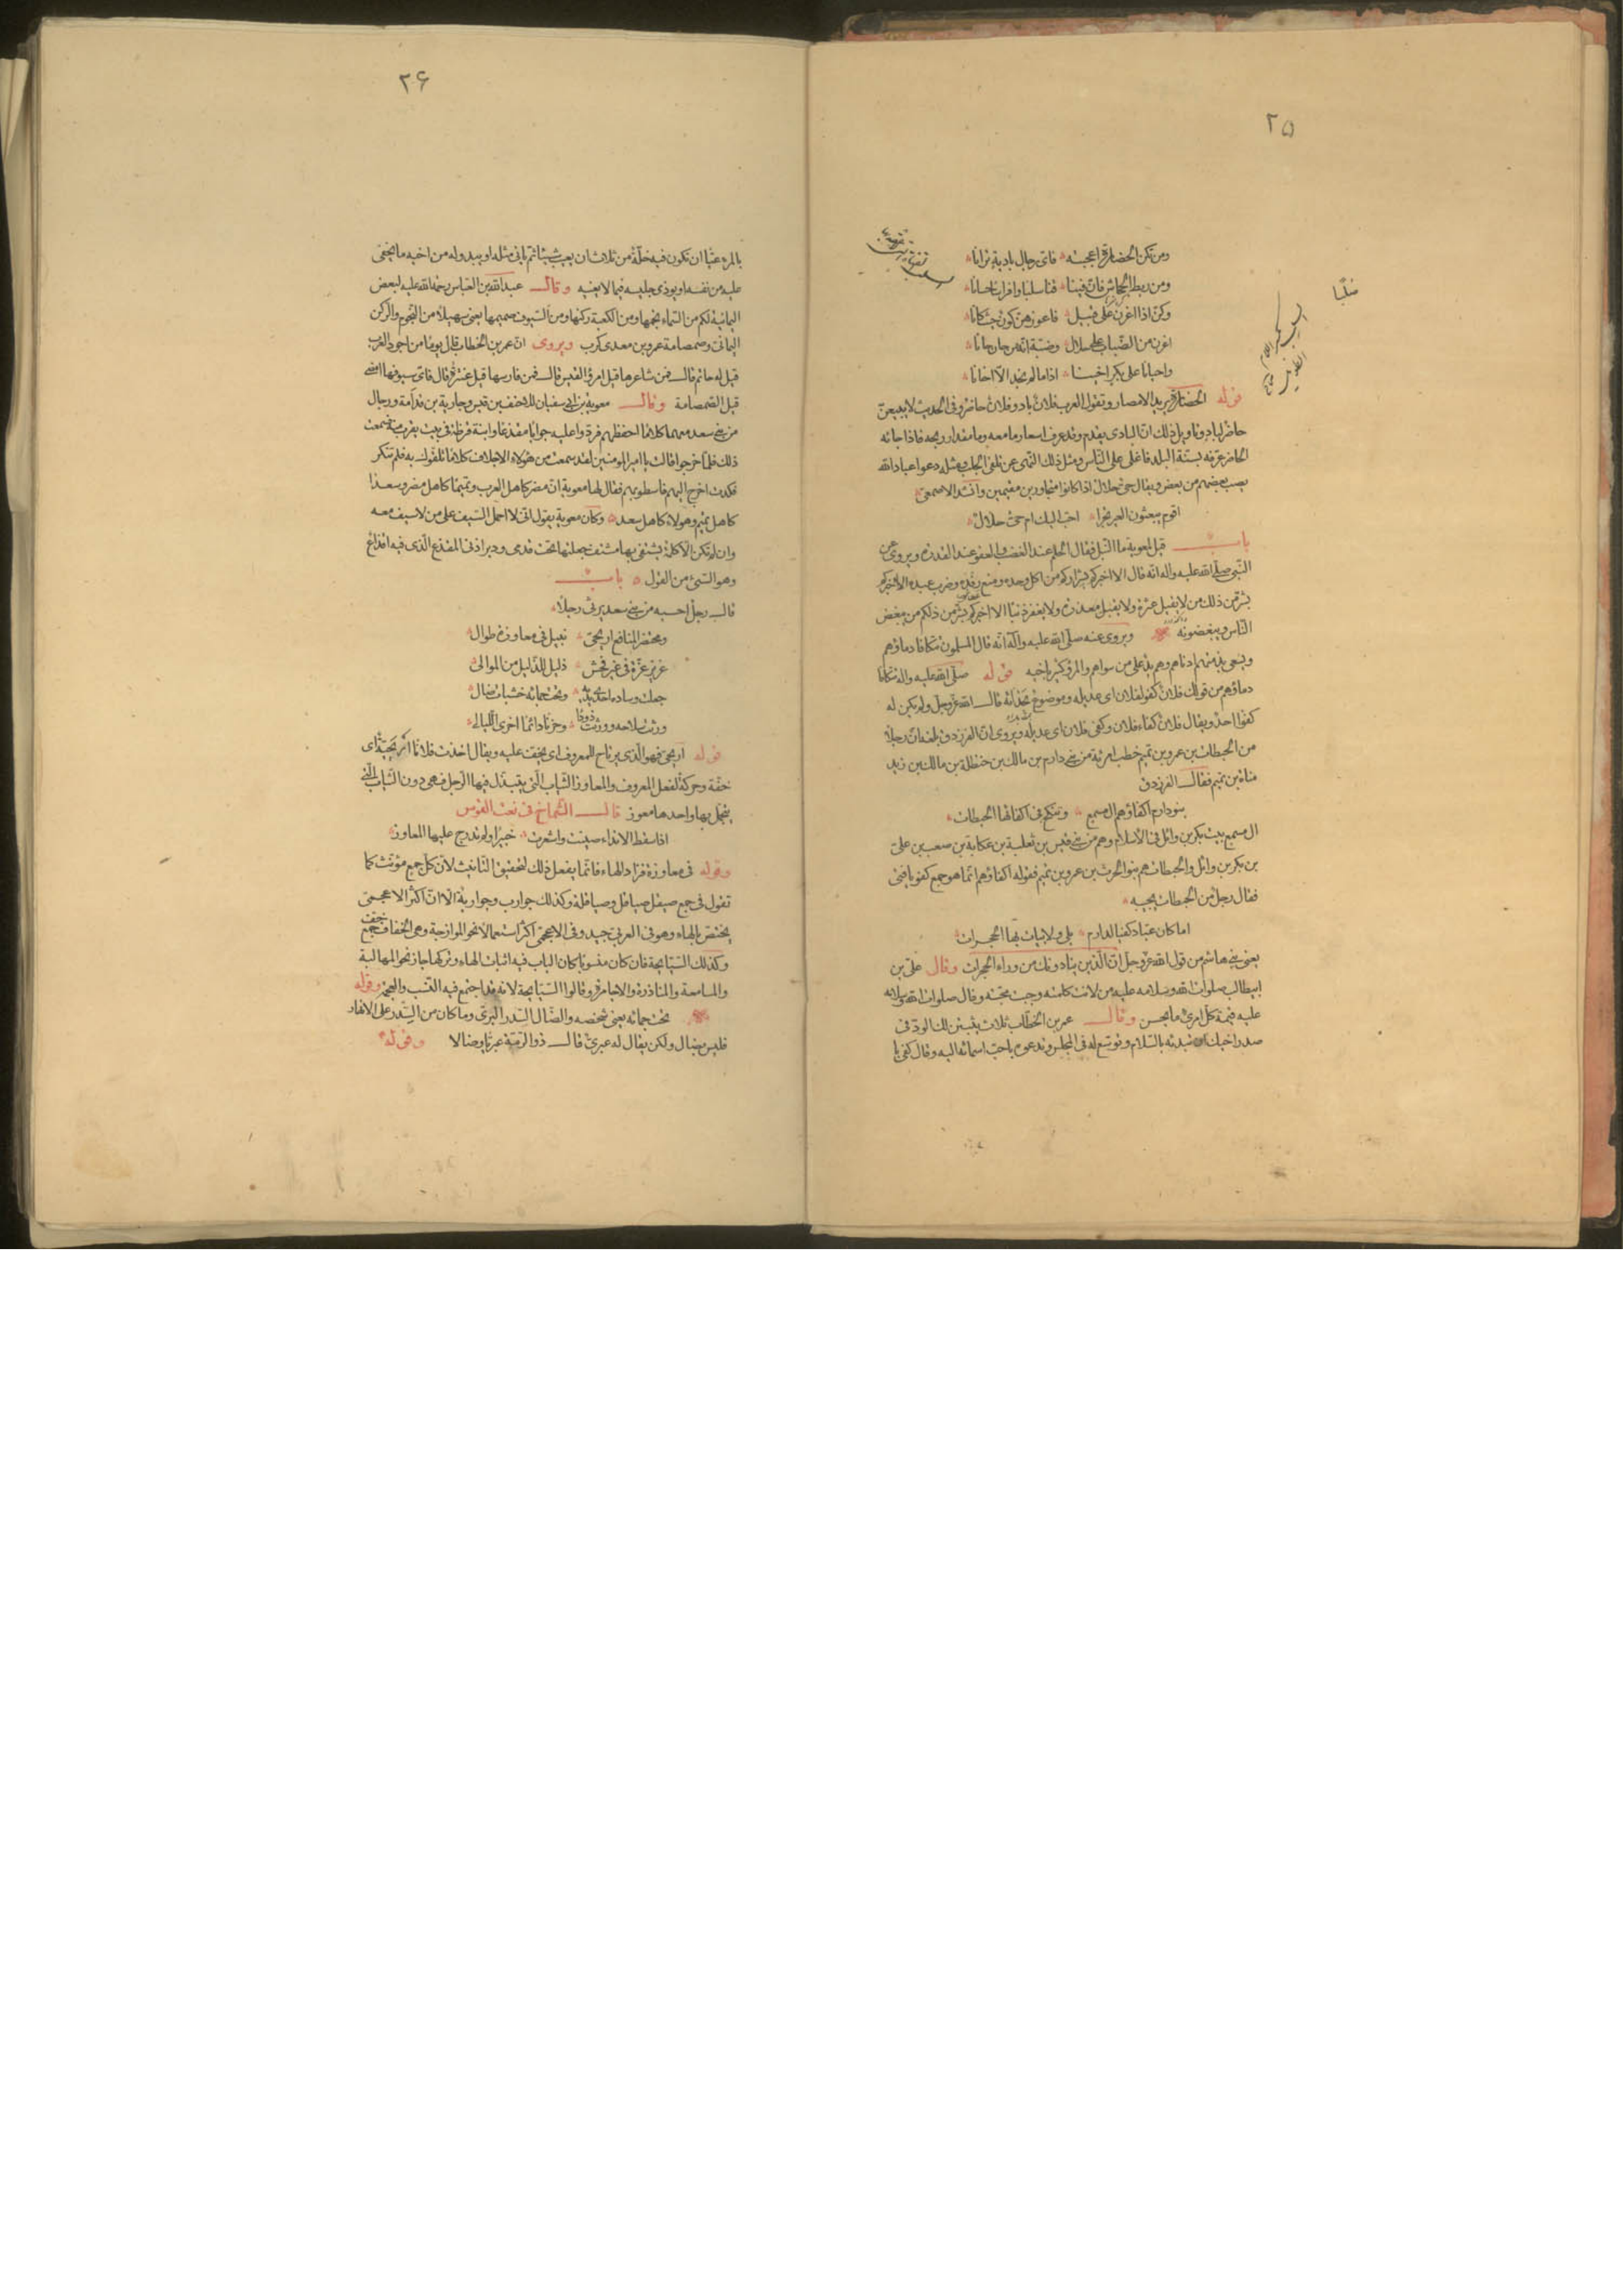 ۲۵
ومن تكن الحضارة اعجبته فاى رجال بادية ترانا
ومن ربط الجحاش فان فينا قنا سلبا وافراسا حسانا
وكن اذا اغرن على قبيل فاعوزهن كون حيث كانا
اغرن من الضباب على حلال وضبة انه من حان حانا
واحيانا على بكر اخينا اذا ما لم نجد الا اخانا
قوله الحضارة يريد الامصار وتقول العرب فلان باد وفلان حاضر وفى الحديث لا يبيعن
حاضر لباد وتاويل ذلك ان البادى يقدم وقد عرف اسعار ما معه وما مقدار ربحه فاذا جاءه
الحاضر عرفه بسنة البلد فاغلى على الناس ومثل ذلك النهى عن تلقى الجلب ومثله دعوا عباد الله
يصب بعضهم من بعض ويقال حى حلال اذا كانوا متجاورين مقيمين وانشد الاصمعى
اقوم يبعثون العير نجرا احب اليك ام حى حلال
باب قيل لمعوية ما النبل فقال الحلم عند الغضب والعفو عند القدرة ويروى عن
النبى صلى الله عليه واله انه قال الا اخبركم بشراركم من اكل وحده ومنع رفده وضرب عبده الا اخبركم
بشر من ذلك من لا يقبل عثرة ولا يقبل معذرة ولا يغفر ذنبا الا اخبركم بشر من ذلكم من يبغض
الناس ويبغضونه ويروى عنه صلى الله عليه واله انه قال المسلمون تتكافا دماؤهم
ويسعى بذمتهم ادناهم وهم يد على من سواهم والمرؤ كثير باخيه قوله صلى الله عليه واله تتكافا
دماؤهم من قولك فلان كفو لفلان اى عديله وموضوع بحذائه قال الله عز وجل ولم يكن له
كفوا احد ويقال فلان كفاء فلان وكفى فلان اى عديله ويروى ان الفرزدق بلغه ان رجلا
من الحبطات بن عمرو بن تميم خطب امرئة من بنى دارم بن مالك بن حنظلة بن مالك بن زيد
مناة بن تميم فقال الفرزدق
بنو دارم اكفاؤهم ال مسمع وتنكح فى اكفائها الحبطات
ال مسمع بيت بكر بن وائل فى الاسلام وهم من بنى قيس بن ثعلبة بن عكابة بن صعب بن على
بن بكر بن وائل والحبطات هم بنو الحرث بن عمرو بن تميم فقوله اكفاؤهم انما هو جمع كفو يا فتى
فقال رجل من الحبطات يجيبه
اما كان عباد كفيا لدارم بلى ولابيات بها الحجرات
يعنى بنى هاشم من قول الله عز وجل ان الذين ينادونك من وراء الحجرات وقال على بن
ابيطالب صلوات الله وسلامه عليه من لانت كلمته وجبت محبته وقال صلوات الله وسلامه
عليه قيمة كل امرئ ما يحسن وقال عمر بن الخطاب ثلاث يثبتن لك الود فى
صدر اخيك ان تبدئه بالسلام وتوسع له فى المجلس وتدعوه باحب اسمائه اليه وقال كفى با
۲۶
بالمرء غيا ان تكون فيه خلة من ثلاث ان يعيب شيئا ثم ياتى مثله او يبدو له من اخيه ما يخفى
عليه من نفسه او يوذى جليسه فيما لا يعنيه وقال عبد الله بن العباس رحمة الله عليه لبعض
اليمانية لكم من السماء نجمها ومن الكعبة ركنها ومن السيوف صميمها يعنى سهيلا من النجوم والركن
اليمانى وصمصامة عمرو بن معدى كرب ويروى ان عمر بن الخطاب قال يوما من اجود العرب
قيل له حاتم قال فمن شاعرها قيل امرؤ القيس قال فمن فارسها قيل عنترة قال فاى سيوفها امضى
قيل الصمصامة وقال معوية بن ابى سفيان للاحنف بن قيس وجارية بن قدامة ورجال
من بنى سعد معهما كلاما احفظهم فردوا عليه جوابا مقذعا وابنة قرظة فى بيت يقرب منه فسمعت
ذلك فلما خرجوا قالت يا امير المومنين لقد سمعت من هولاء الاجلاف كلاما تلقوك به فلم تنكر
فكدت اخرج اليهم فاسطو بهم فقال لها معوية ان مضر كاهل العرب وتميما كاهل مضر وسعدا
كاهل تميم وهولاء كاهل سعد وكان معوية يقول انى لا احمل السيف على من لا سيف معه
وان لم تكن الا كلمة يشتفى بها مشتف جعلتها تحت قدمى ودبر اذنى المقذع الذى فيه اقذاع
وهو السئ من القول باب
قال رجل احسبه من بنى سعد يرثى رجلا
ومحتضر المنافع اريحى نبيل فى معاوزة طوال
عزيز عزة فى غير فحش ذليل للذليل من الموالى
جعلت وساده احدى يديه وتحت جمائه خشبات ضال
ورثت سلاحه وورثت ذودا وحزنا دائما اخرى الليالى
قوله اريحى فهو الذى يرتاح للمعروف اى يخف عليه ويقال اخذت فلانا اريحية اى
خفة وحركة لفعل المعروف والمعاوز الثياب التى يتبذل فيها الرجل فهى دون الثياب التى
يتجمل بها واحدها معوز قال الشماخ فى نعت القوس
اذا سقط الانداء صينت واشعرت حبيرا ولم تدرج عليها المعاوز
وقوله فى معاوزة فزاد الهاء فانما يفعل ذلك لتحقيق التانيث لان كل جمع مؤنث كما
تقول فى جمع صيقل صياقل وصياقلة وكذلك جوارب وجواربة الا ان اكثر الاعجمى
يختص بالهاء وهو فى العربى جيد وفى الاعجمى اكثر استعمالا نحو الموازجة وهى الخفاف جمع خف
وكذلك السيابجة فان كان منسوبا كان الباب فيه اثبات الهاء وتركها جائز نحو المهالبة
والمسامعة والمناذرة والاحامرة وقالوا السيابجة لانه قد اجتمع فيه النسب والعجمة وقوله
تحت جمائه يعنى شخصه والضال السدر البرى وما كان من السدر على الانهار
فليس بضال ولكن يقال له عبرى قال ذو الرمة عبريا وضالا وقوله